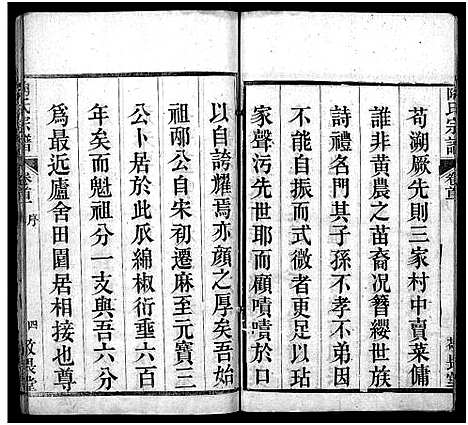 苟溯厥先則三家村中賣菜傭
誰非黃農之苗裔况簪纓世族
詩禮名門其子孫不孝不弟因
不能自振而式微者更足以玷
家聲污先世耶而顧嘖嘖於口
以自誇耀焉亦顏之厚矣吾始
祖邴公自宋初遷麻至元寶三
公卜居於此瓜綿椒衍垂六百
年矣而魁祖分一支與吾六分
為最近廬舍田園居相接也尊
氏宗譜
卷首
序
四